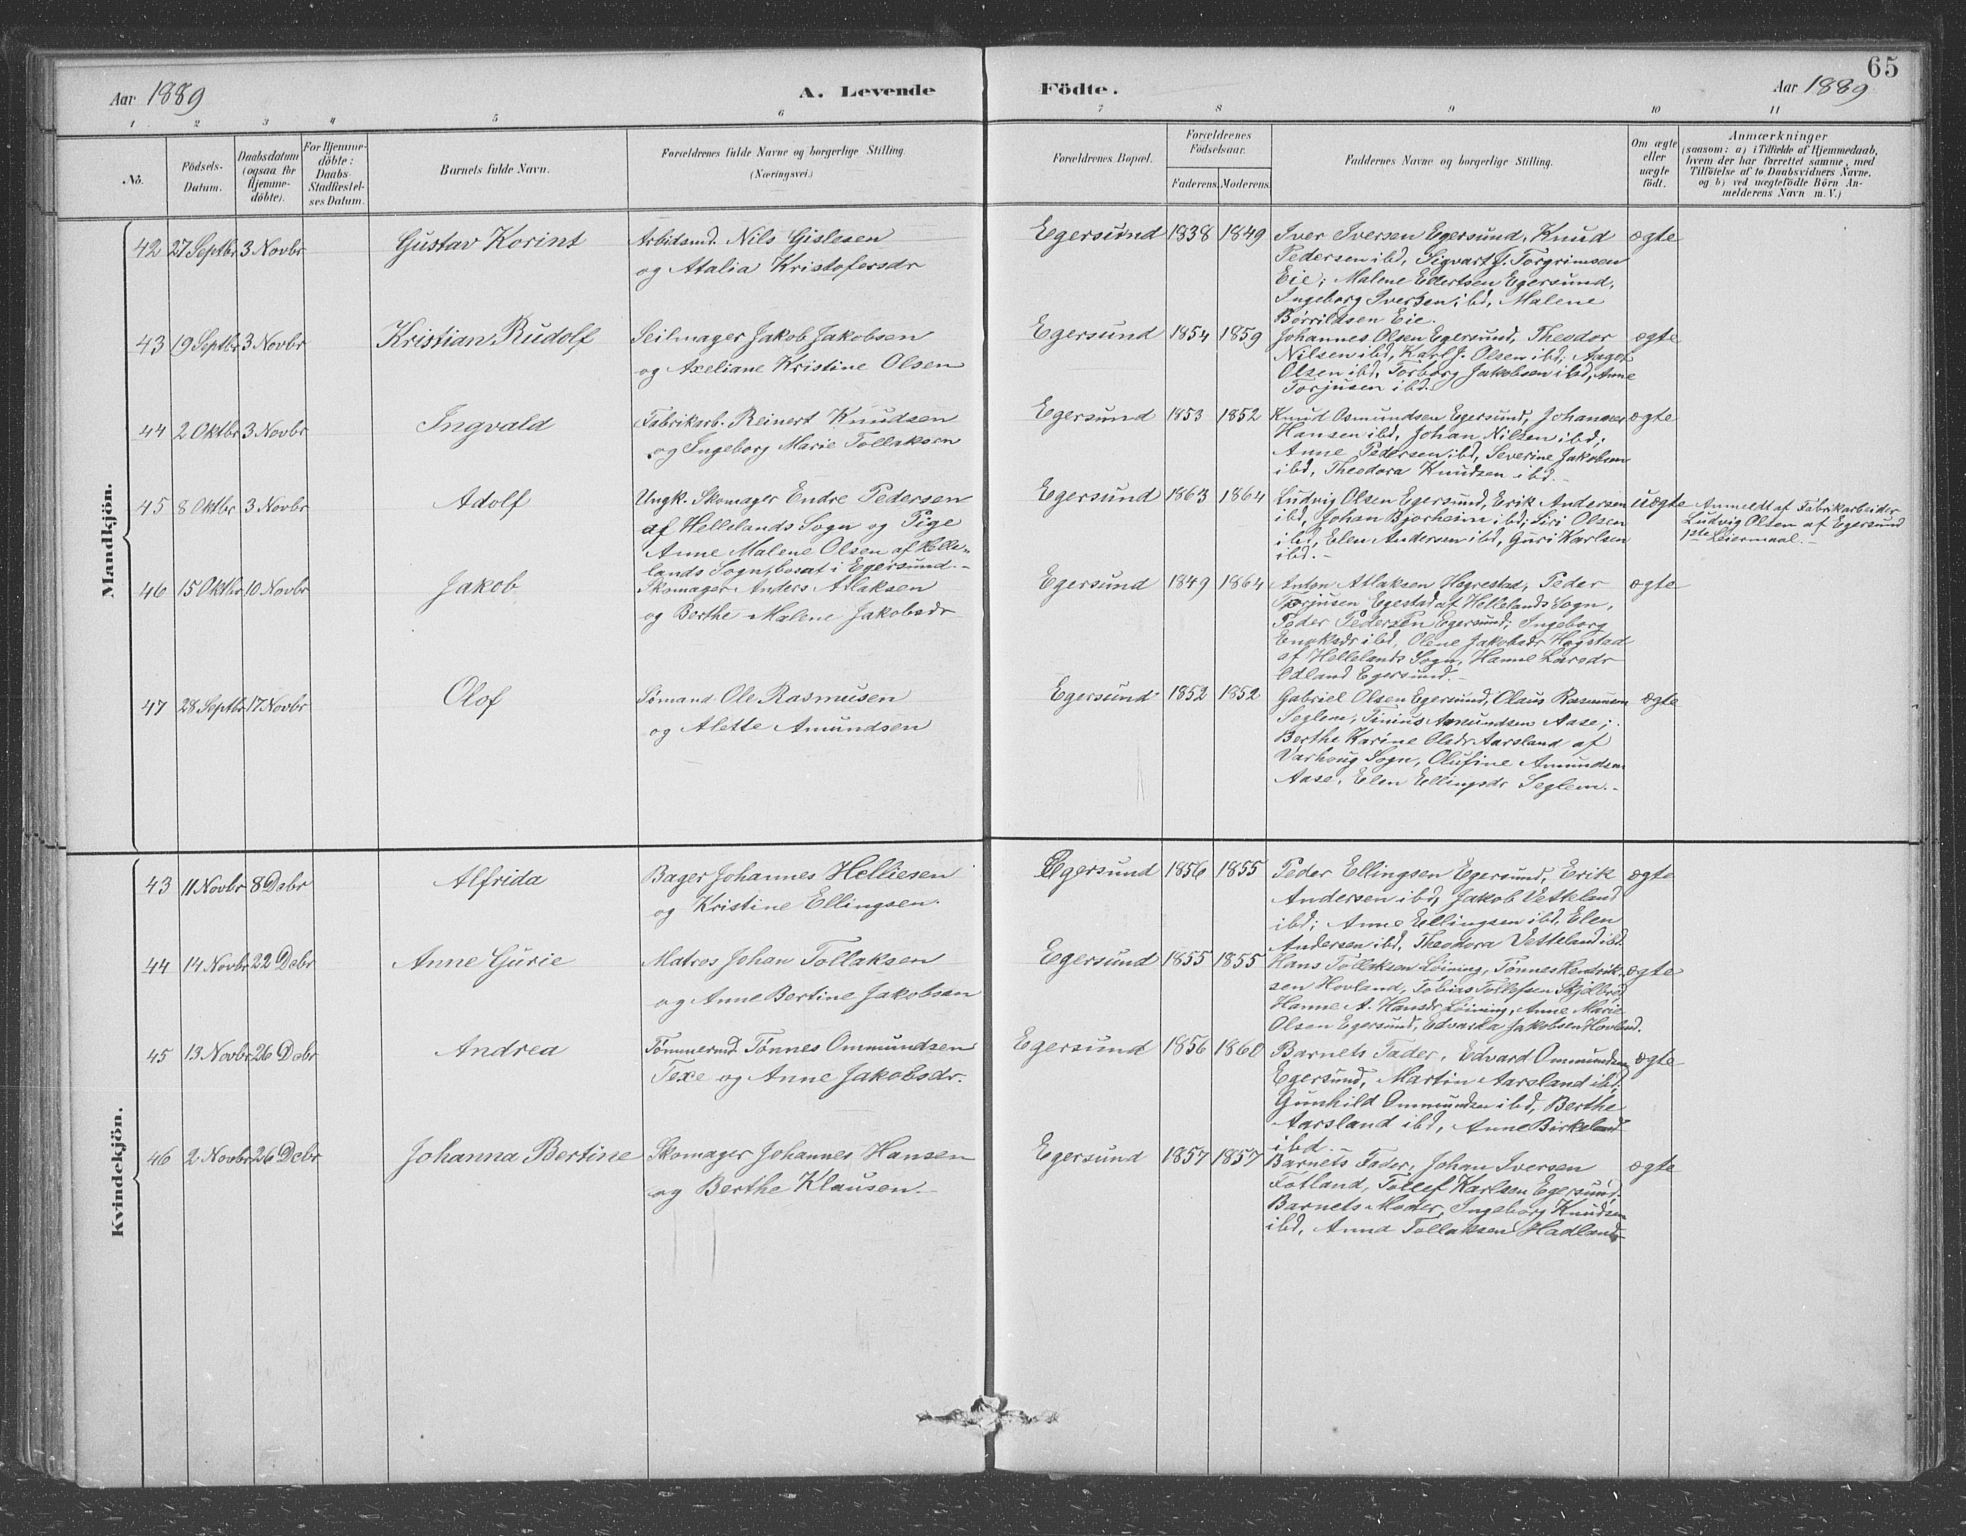 65
Aar 1889 A. Levende Födte. Aar 1889
1 2 3 4 5 6 7 8 9 10 11
No.
Födsels-Datum.
Daabsdatum (ogsaa for Hjemme-döbte).
For Hjemme-döbte: Daabs-Stadfæstel-ses Datum.
Barnets fulde Navn.
Forældrenes fulde Navne og borgerlige Stilling. (Næringsvei.)
Forældrenes Bopæl.
Forældrenes Födselsaar.
Faderens. Moderens.
Faddernes Navne og borgerlige Stilling.
Om ægte eller uægte födt.
Anmærkninger
(saasom: a) i Tilfælde af Hjemmedaab,
hvem der har forrettet samme, med
Tilföielse af to Daabsvidners Navne.
og b) ved uægtefödte Börn An-
melderens Navn m. V.)
Mandkjön.
42 27 Septbr 3 Novbr Gustav Korint Arbitsmd. Nils Gislesen
og Atalia Kristofersdr
Egersund 1838 1849 Iver Iversen Egersund, Knud ægte
Pedersen ibd, Sigvart J. Torgrimsen
Eie; Malene Edertsen Egersund,
Ingeborg Iversen ibd, Malene
Børrildsen Eie.
43 19 Septbr 3 Novbr Kristian Rudolf Seilmager Jakob Jakobsen
og Axeliane Kristine Olsen
Egersund 1854 1859 Johannes Olsen Egersund, Theodor ægte
Nilsen ibd, Karl J. Olsen ibd; Aagot
Olsen ibd, Torborg Jakobsen ibd, Anne
Torjusen ibd.
44 2 Oktbr 3 Novbr Ingvald Fabrikarb. Reinert Knudsen
og Ingeborg Marie Tollaksen
Egersund 1853 1852 Knud Osmundsen Egersund, Johannes ægte
Hansen ibd, Johan Nilsen ibd;
Anne Pedersen ibd, Severine Jakobsen
ibd, Theodora Knudsen ibd.
45 8 Oktbr 3 Novbr Adolf Ungk. Skomager Endre Pedersen
af Hellelands Sogn og Pige
Anne Malene Olsen af Helle-
lands Sogn, bosat i Egersund.-
Egersund 1863 1864 Ludvig Olsen Egersund, Erik Andersen uægte
ibd, Johan Bjorheim ibd; Siri Olsen
ibd, Elen Andersen ibd, Guri Karlsen
ibd.-
Anmeldt af Fabrikarbeider
Ludvig Olsen af Egersund
1ste Leiermaal.-
46 15 Oktbr 10 Novbr Jakob Skomager Anders Atlaksen
og Berthe Malene Jakobsdr
Egersund 1849 1864 Anton Atlaksen Hegrestad, Peder ægte
Torjusen Egestad af Hellelands Sogn,
Peder Pedersen Egersund; Ingeborg
Enoksdr ibd, Olene Jakobsdr Høgstad
af Hellelands Sogn, Hanne Larsdr
Edland Egersund.-
47 28 Septbr 17 Novbr Olof Sømand Ole Rasmusen
og Alette Amundsen
Egersund 1852 1852 Gabriel Olsen Egersund, Olaus Rasmusen ægte
Seglem, Tinius Amundsen Aase;
Berthe Karine Olsdr Aarsland af
Varhoug Sogn, Olufine Amundsen
Aase, Elen Ellingsdr Seglem.-
Kvindekjön.
43 11 Novbr 8 Debr Alfrida Bager Johannes Helliesen
og Kristine Ellingsen.
Egersund 1856 1855 Peder Ellingsen Egersund, Erik ægte
Andersen ibd, Jakob Vetteland
ibd; Anne Ellingsen ibd, Elen
Andersen ibd, Theodora Vetteland ibd.
44 14 Novbr 22 Debr Anne Gurie Matros Johan Tollaksen
og Anne Bertine Jakobsen
Egersund 1855 1855 Hans Tollaksen Løining, Tønnes Hendrik- ægte
sen Hovland, Tobias Tollefsen Skjelbred,
Hanne A. Hansdr Løining, Anne Marie
Olsen Egersund, Edvarda Jakobsen Hovland.
45 13 Novbr 26 Debr Andrea Tømmermd. Tønnes Ommundsen
Texe og Anne Jakobsdr.
Egersund 1856 1860 Barnets Fader, Edvard Ommundsen ægte
Egersund, Martin Aarsland ibd;
Gunhild Ommundsen ibd, Berthe
Aarsland ibd, Anne Birkeland
ibd.-
46 2 Novbr 26 Debr Johanna Bertine Skomager Johannes Hansen
og Berthe Klausen.-
Egersund 1857 1857 Barnets Fader, Johan Iversen ægte
Fotland, Tollef Karlsen Egersund,
Barnets Moder, Ingeborg Knudsen
ibd, Anna Tollaksen Hadland